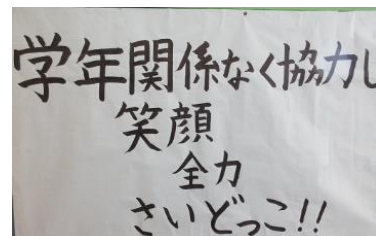 学年関係なく協力し
笑顔
全力
さいどっこ!!